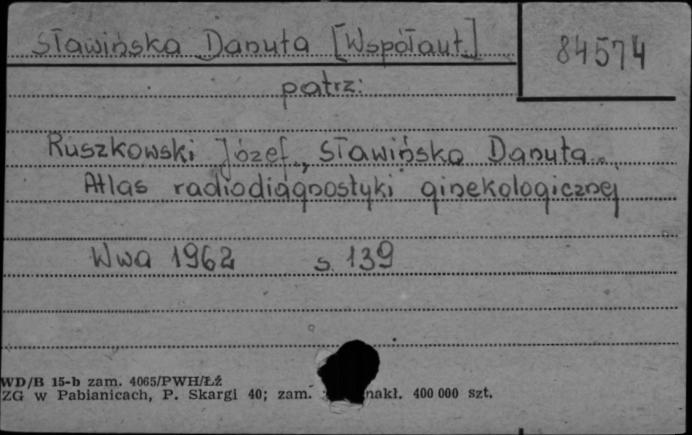 Sławińska Danuta [Współaut.]
84574
patrz:
Ruszkowski Józef, Sławińska Danuta.
Atlas radiodiagnostyki ginekologicznej
Wwa 1962 s. 139
WD/B 15-b zam. 4065/PWH/ŁŹ
ZG w Pabianicach, P. Skargi 40; zam. nakł. 400 000 szt.